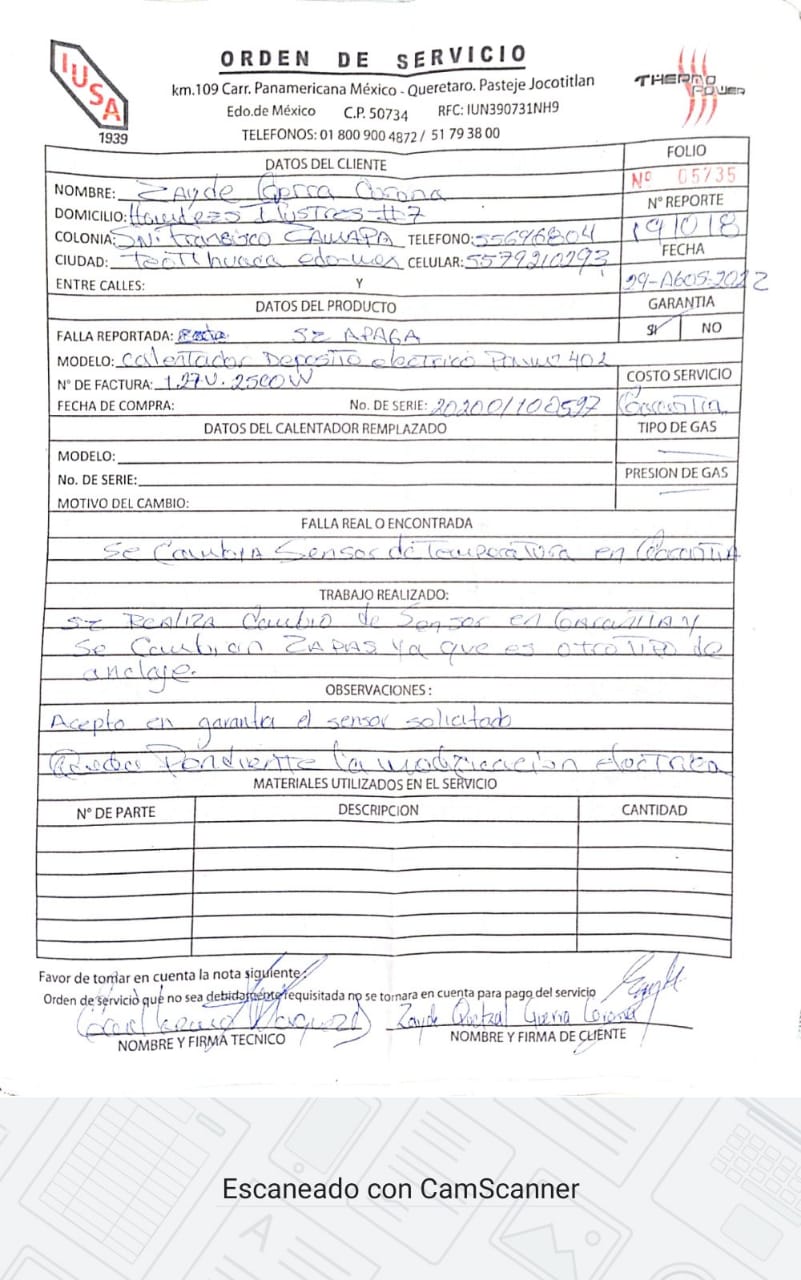 IUSA
1939
ORDEN DE SERVICIO
km.109 Carr. Panamericana México - Queretaro. Pasteje Jocotitlan
Edo.de México C.P. 50734 RFC: IUN390731NH9
TELEFONOS: 01 800 900 4872 / 51 79 38 00
THERMO POWER
DATOS DEL CLIENTE
FOLIO
Nº 05735
NOMBRE: Zayde Corona
Nº REPORTE
191018
DOMICILIO: Ilustres #7
COLONIA: Sn. Francisco TELEFONO: 55696804
FECHA
29-AGOS-2022
CIUDAD: edo-mex CELULAR: 5579210293
ENTRE CALLES: Y
DATOS DEL PRODUCTO
GARANTIA
SI NO
FALLA REPORTADA: SE APAGA
MODELO: Calentador Deposito electrico 402
Nº DE FACTURA: 127V. 2500W
COSTO SERVICIO
Garantia
FECHA DE COMPRA: No. DE SERIE:
DATOS DEL CALENTADOR REMPLAZADO
TIPO DE GAS
MODELO:
No. DE SERIE:
PRESION DE GAS
MOTIVO DEL CAMBIO:
FALLA REAL O ENCONTRADA
Se Cambia Sensor de Temperatura en Garantia
TRABAJO REALIZADO:
SE REALIZA Cambio de Sensor en GARANTIA Y
Se Cambian ZAPAS Ya que es otro TIPO de
anclaje.
OBSERVACIONES :
Acepto en garantia el sensor solicitado
Queda Pendiente la modificacion electrica
MATERIALES UTILIZADOS EN EL SERVICIO
Nº DE PARTE DESCRIPCION CANTIDAD
Favor de tomar en cuenta la nota siguiente :
Orden de servicio que no sea debidamente requisitada no se tomara en cuenta para pago del servicio
Zayde Quetzal Guerra Corona
NOMBRE Y FIRMA TECNICO
NOMBRE Y FIRMA DE CLIENTE
Escaneado con CamScanner